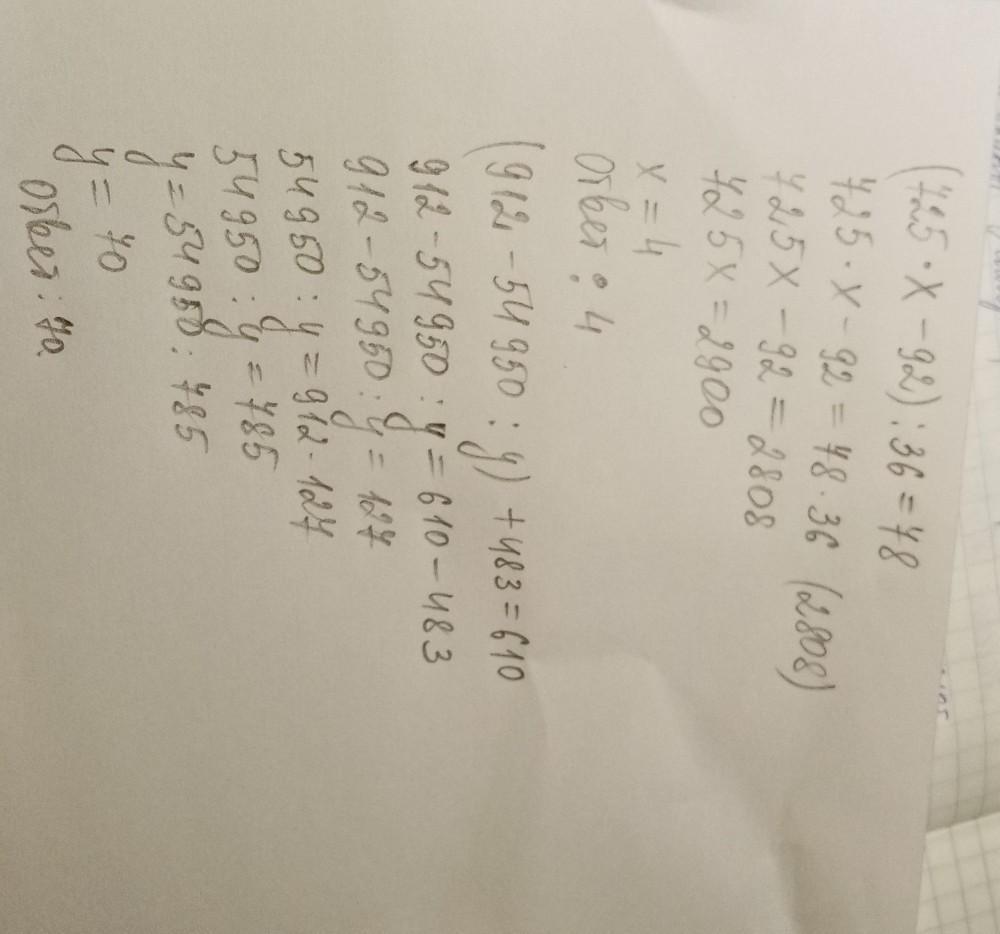 (725·x-92):36=78
725·x-92=78·36 (2808)
725x-92=2808
725x=2900
x=4
Ответ: 4
(912-54950:y)+483=610
912-54950:y=610-483
912-54950:y=127
54950:y=912-127
54950:y=785
y=54950:785
y=70
Ответ: 70